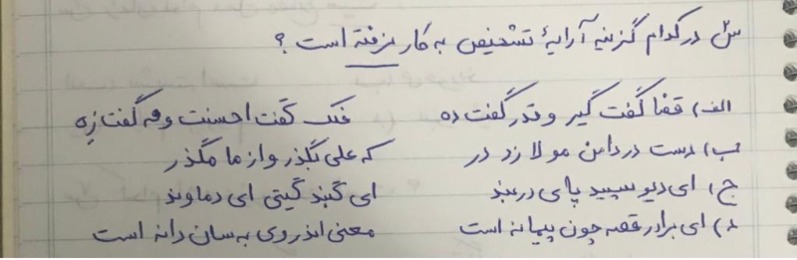 س در کدام گزینه آرایهٔ تشخیص به کار نرفته است ؟
الف) قضا گفت گیر و قدر گفت ده فلک گفت احسنت و مه گفت زه
ب) دست در دامن مولا زد در که علی بگذر و از ما مگذر
ج) ای دیو سپید پای در بند ای گنبد گیتی ای دماوند
د) ای برادر قصه چون پیمانه است معنی اندر وی به سان دانه است